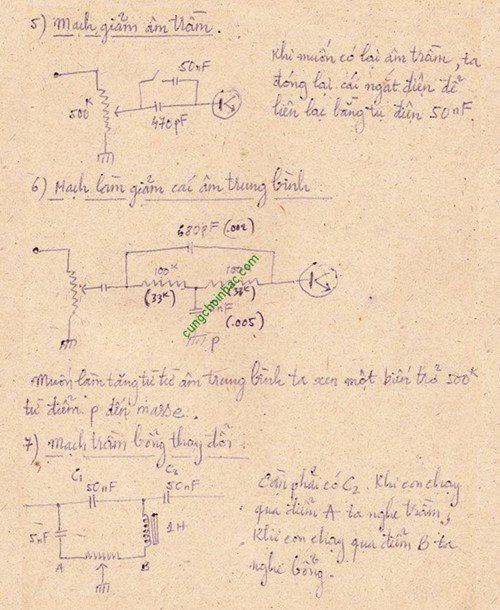 5) Mạch giảm âm trầm.
50nF
500K
470pF
Khi muốn có lại âm trầm, ta
đóng lại cái ngắt điện để
liên lạc bằng tụ điện 50nF
6) Mạch làm giảm cái âm trung bình
680pF (.002)
100K
(33K)
(33K)
nF
(.005)
P
cungchoinhac.com
Muốn làm tăng từ từ âm trung bình ta xen một biến trở 500K
từ điểm P đến masse.
7) Mạch trầm bổng thay đổi
C1
50nF
C2
50nF
5nF
1H
A
B
Cần phải có C2. Khi con chạy
qua điểm A ta nghe trầm,
Khi con chạy qua điểm B ta
nghe bổng.